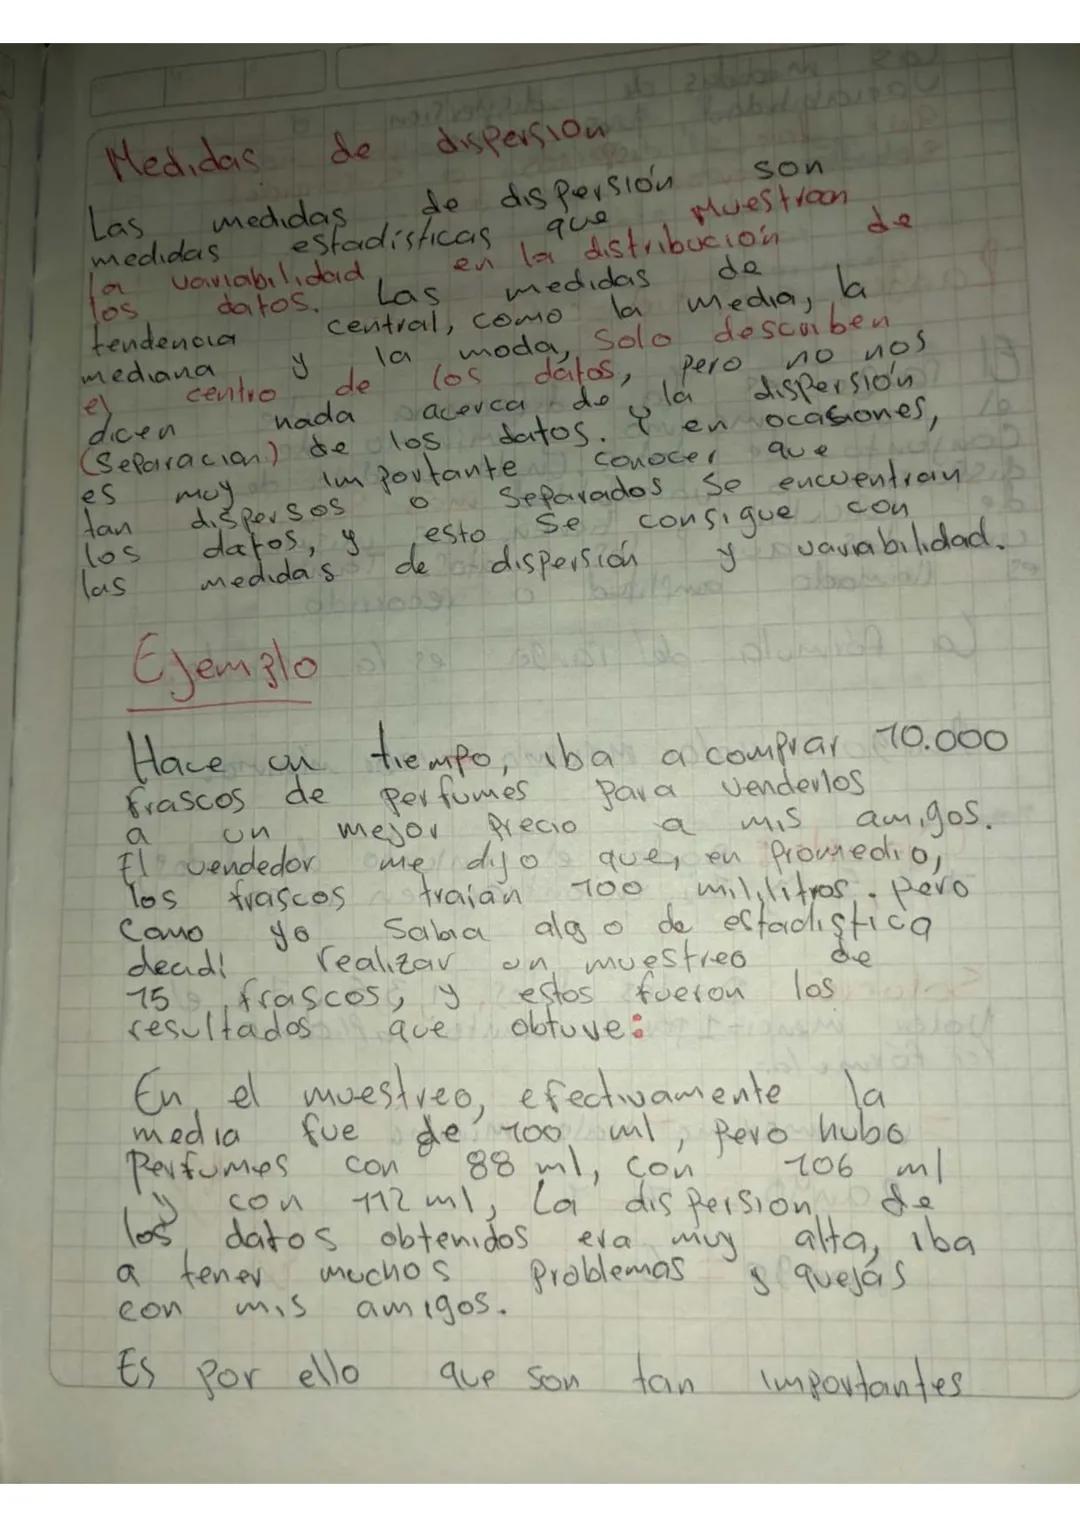 Medidas de dispersion
Las medidas de dispersión son
medidas estadísticas que Muestran
la variabilidad en la distribución de
los datos. Las medidas de
tendencia central, como la media, la
mediana y la moda, solo describen
el centro de los datos, pero no nos
dicen nada acerca de la dispersión
(Separacion) de los datos. Y en ocasiones,
es muy importante conocer que
tan dispersos o separados se encuentran
los datos, y esto se consigue con
las medidas de dispersión y variabilidad.
Ejemplo
Hace un tiempo, iba a comprar 10.000
frascos de perfumes para venderlos
a un mejor precio a mis amigos.
El vendedor me dijo que, en promedio,
los frascos traían 100 mililitros. Pero
como yo sabia algo de estadistica
decidi realizar un muestreo de
15 frascos, y estos fueron los
resultados que obtuve:
En el muestreo, efectivamente la
media fue de 100 ml, pero hubo
Perfumes con 88 ml, con 106 ml
y con 112 ml, La dispersion de
los datos obtenidos era muy alta, iba
a tener muchos problemas y quejas
con mis amigos.
Es por ello que son tan importantes